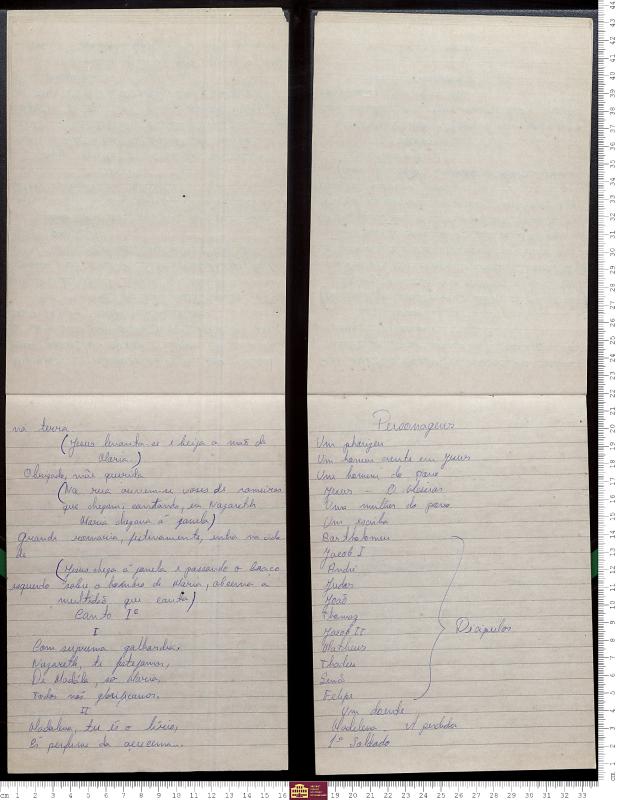 na terra.
(Jesus levanta-se e beija a mão de
Maria.)
Obrigado, mãe querida
(Na rua ouvem-se vozes de romeiros
que chegam, cantando, em Nazareth
Maria chegará à janela)
Grande romaria, festivamente, entra na cida-
de
(Jesus chega à janela e passando o braço
esquerdo sobre o hombro de Maria, observa a
multidão que canta)
Canto Iº
I
Com suprema galhardia,
Nazareth, te festejamos,
De Maria,
Todos nós glorificamos.
II
Madalena, tu és o lírio,
És perfume da açucena...
Personagens
Um phariseu
Um homem crente em Jesus
Um homem do povo
Jesus - O Messias
Uma mulher do povo
Um escriba
Bartholomeu
Jacob I
André
Judas
João
Thomaz
Jacob II
Matheus
Thadeu
Simão
Felipe
Discipulos
Um doente
Madalena A perdida
1º Soldado